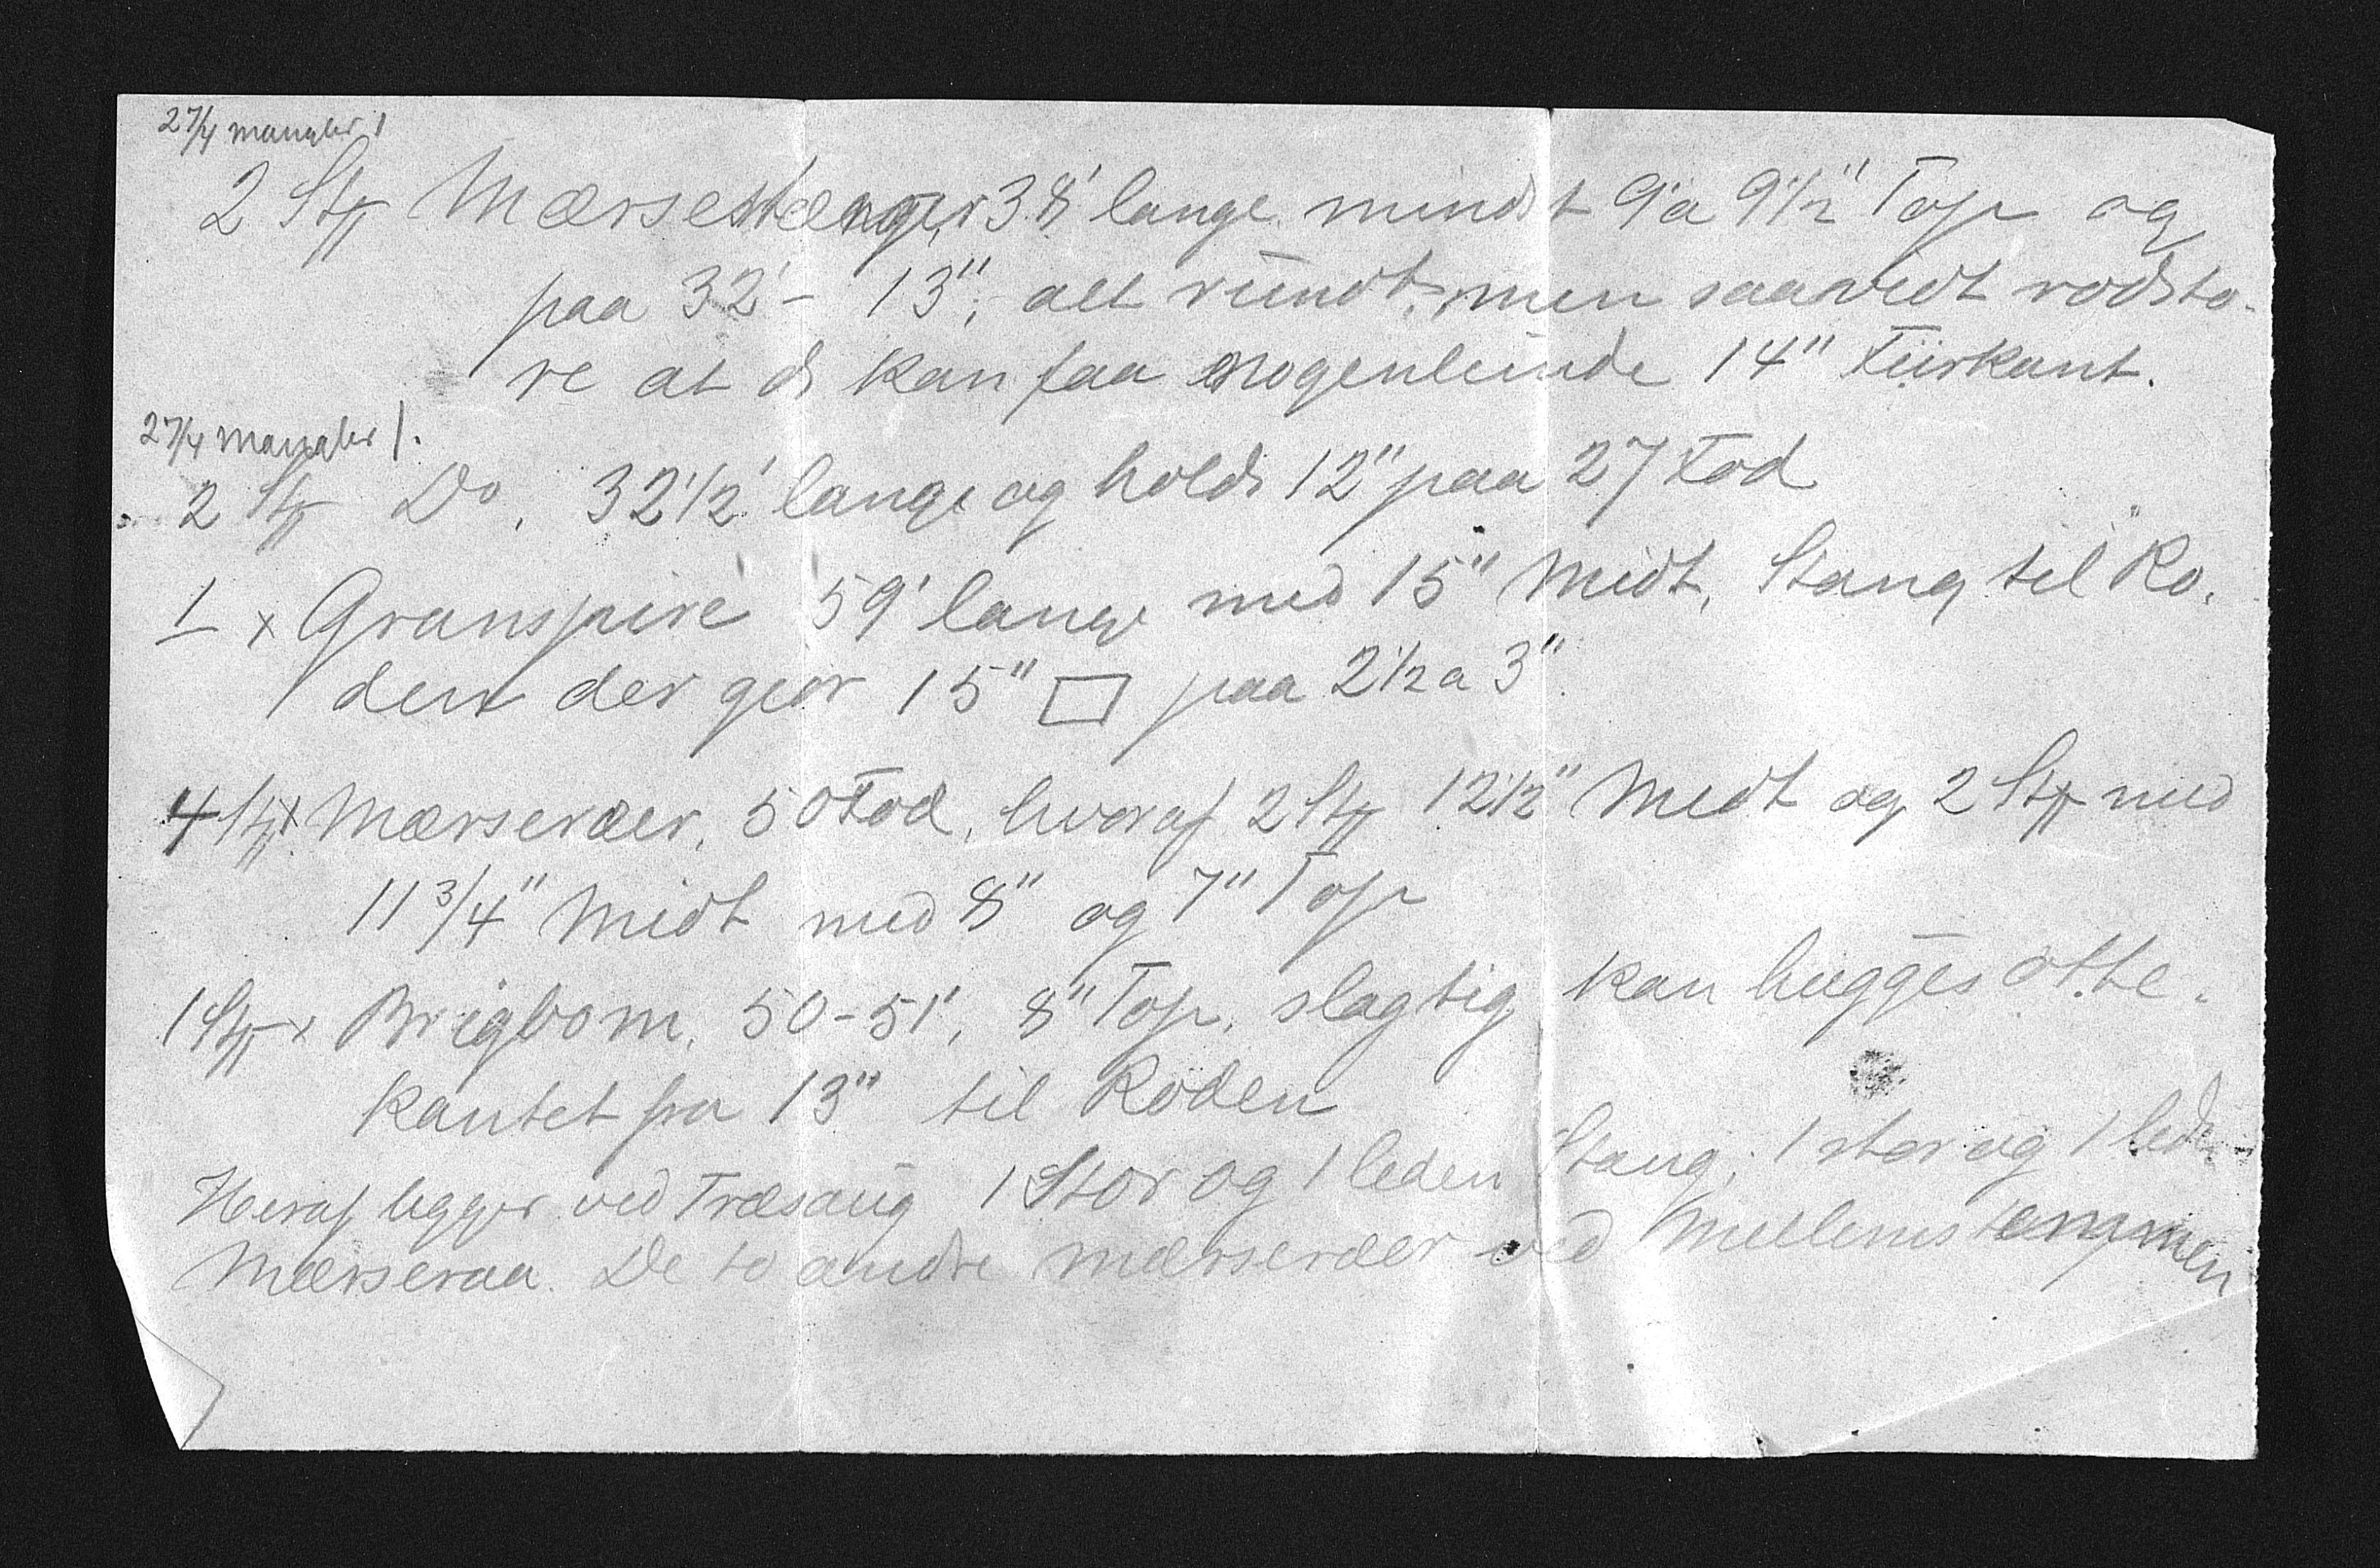 27/4 mangler 1
2 Stk Mærsestænger 38' lange mindst 9" a 9 1/2" Top og
paa 32' - 13", alt rundt, men saavidt rodsto-
re at di kan faa nogenlunde 14" Fiirkant.
27/4 mangler 1.
2 Stk Do, 32 1/2' lange og holde 12" paa 27 Fod
1 x Granspire 59' lange med 15" Midt, Stang til Ro,
den der gior 15" □ paa 2 1/2 a 3"
4 Stk x Mærseræer, 50 Fod, hvoraf 2 Stk 12 1/2" Midt og 2 Stk med
11 3/4" Midt med 8" og 7" Top
1 Stk x Brigbom, 50-51', 8" Top, slagtig kan hugges otte-
kantet fra 13" til Roden
Heraf ligger ved Træsaug 1 Stor og 1 leden Stang; 1 stor og 1 leden
Mærseraa. De to andre mærseræer ved